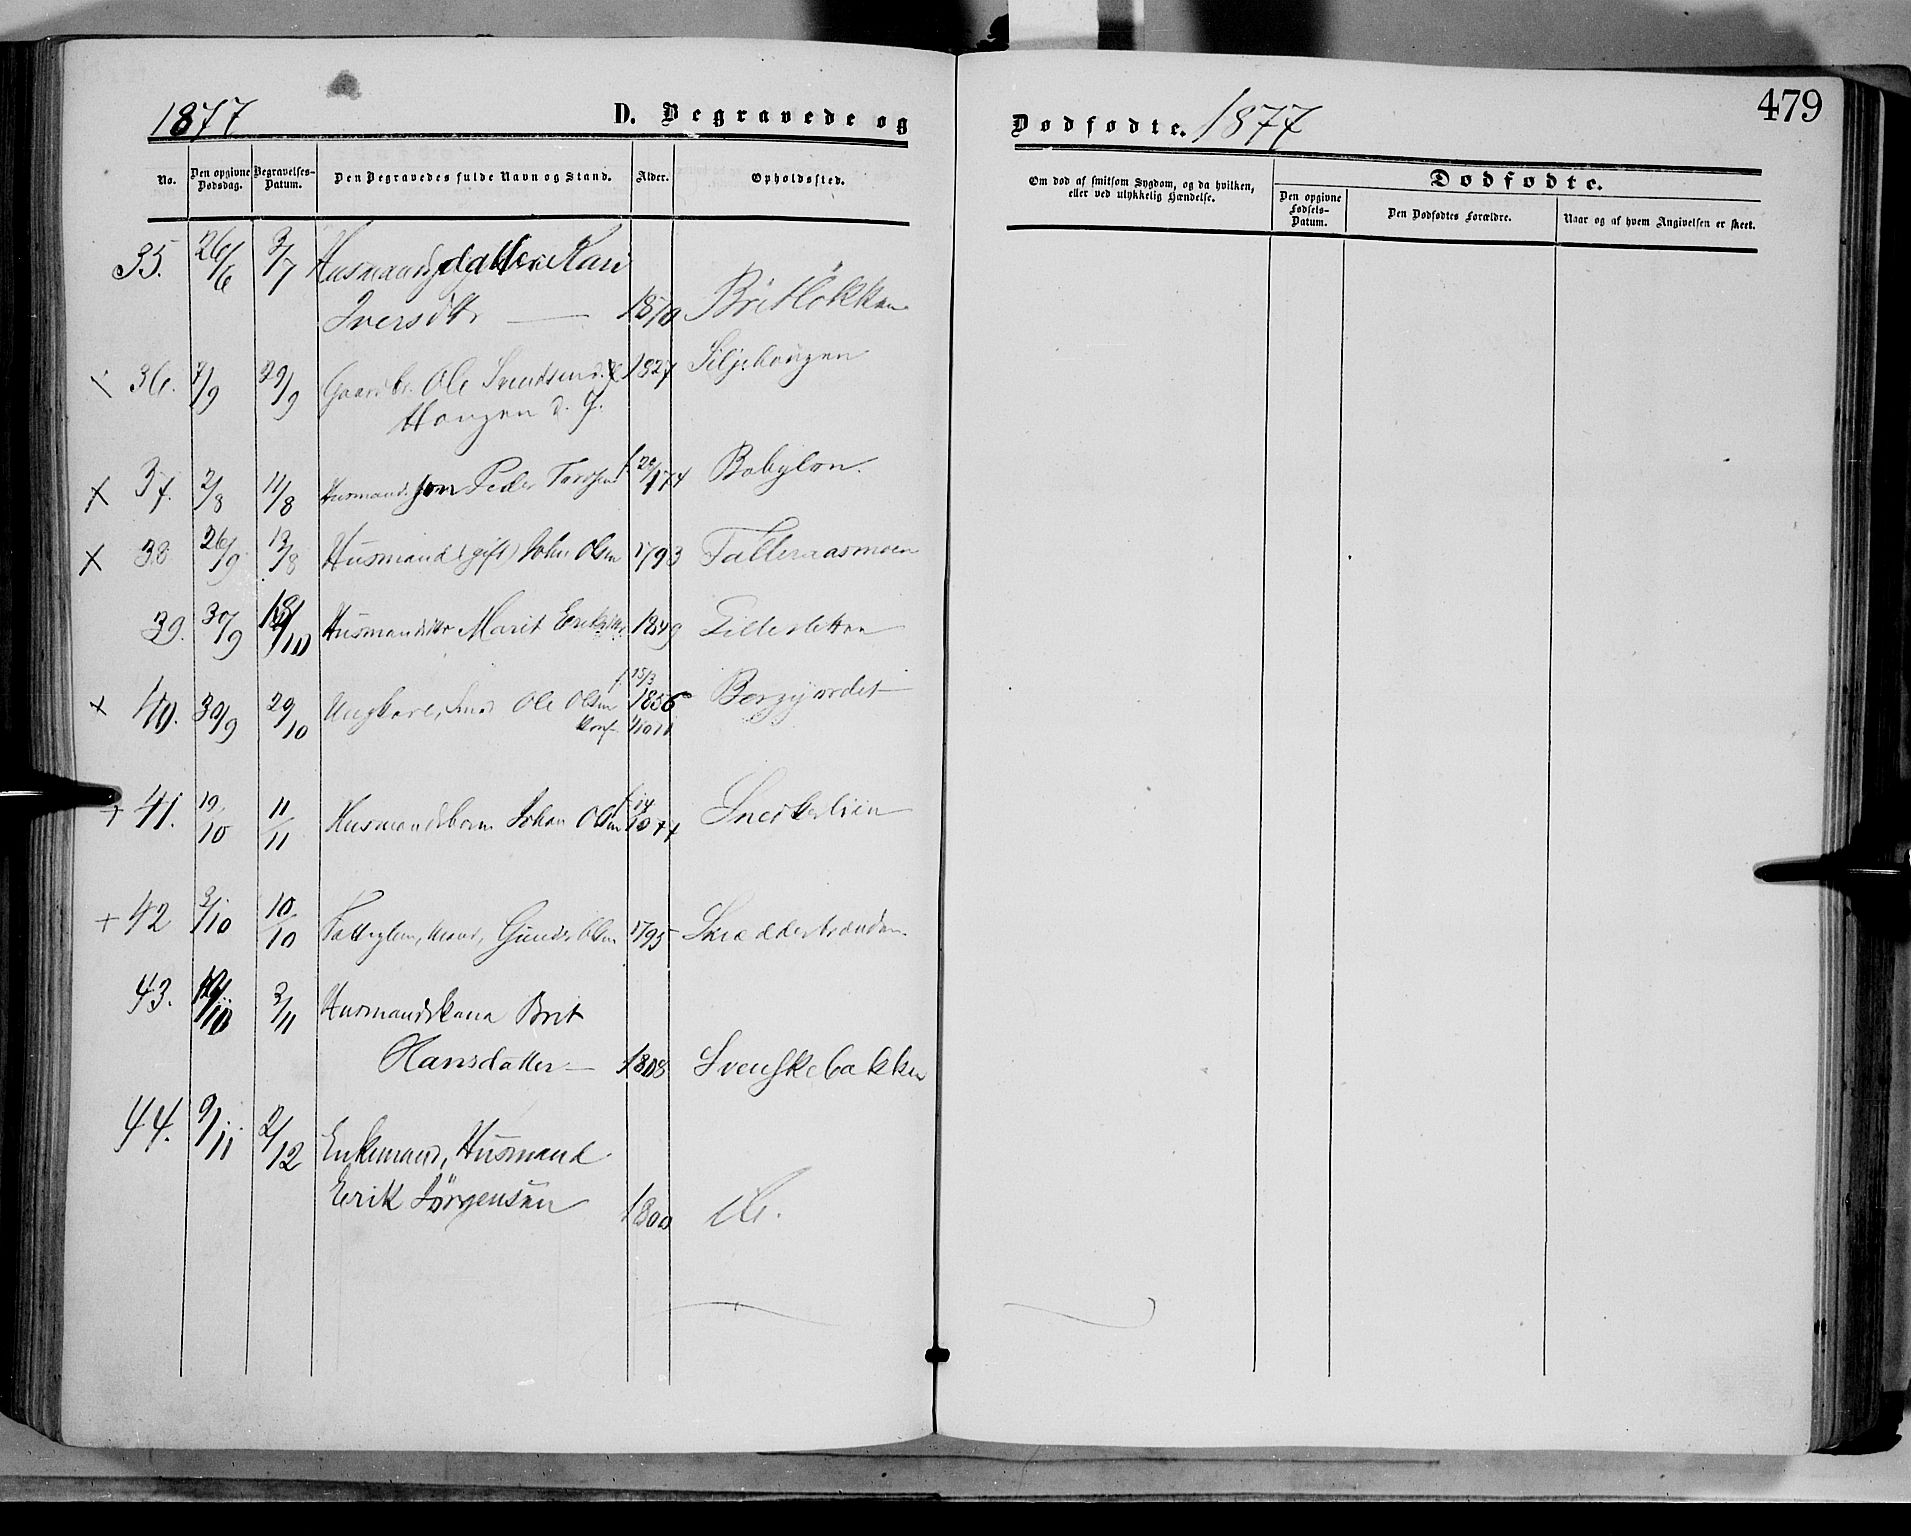 1877
D. Begravede og
Dødfødte. 1877
479
No.
Den opgivne Dødsdag.
Begravelses-Datum.
Den Begravedes fulde Navn og Stand.
Alder.
Opholdssted.
Om død af smitsom Sygdom, og da hvilken, eller ved ulykkelig Hændelse.
Dødfødte.
Den opgivne Fødsels-Datum.
Den Dødfødtes Forældre.
Naar og af hvem Angivelsen er skeet.
35. 26/6 3/7 Husmandsdatter Kari
Iversdtr 1870 Britløkken
36. 7/9 29/9 Gaardbr. Ole Svendsen 1827 Siljehaugen
Haugen d. y.
x 37. 2/8 11/8 Husmands søn Peder f. 74 Babylon.
x 38 26/9 13/8 Husmand (gift) John Olsen 1793 Talleraasmoen
39. 30/9 /10 Husmandsdtr Marit Eriksdtr. 1849
f. 15/3
x 40. 30/9 29/10 Ungkarl, Ole Olsen 1856
Konf.
+ 41. 19/10 11/11 Husmandsbarn Johan Olsen f. 14/10 77 Snedkerlien
+ 42 3/10 10/10 Fattiglem, Olsen 1795
43. /10 3/11 Husmandskona Brit
Hansdatter 1808 Svenskebakken
44. 9/11 2/12 Enkemand, Husmand
Erik Jörgensen 1800